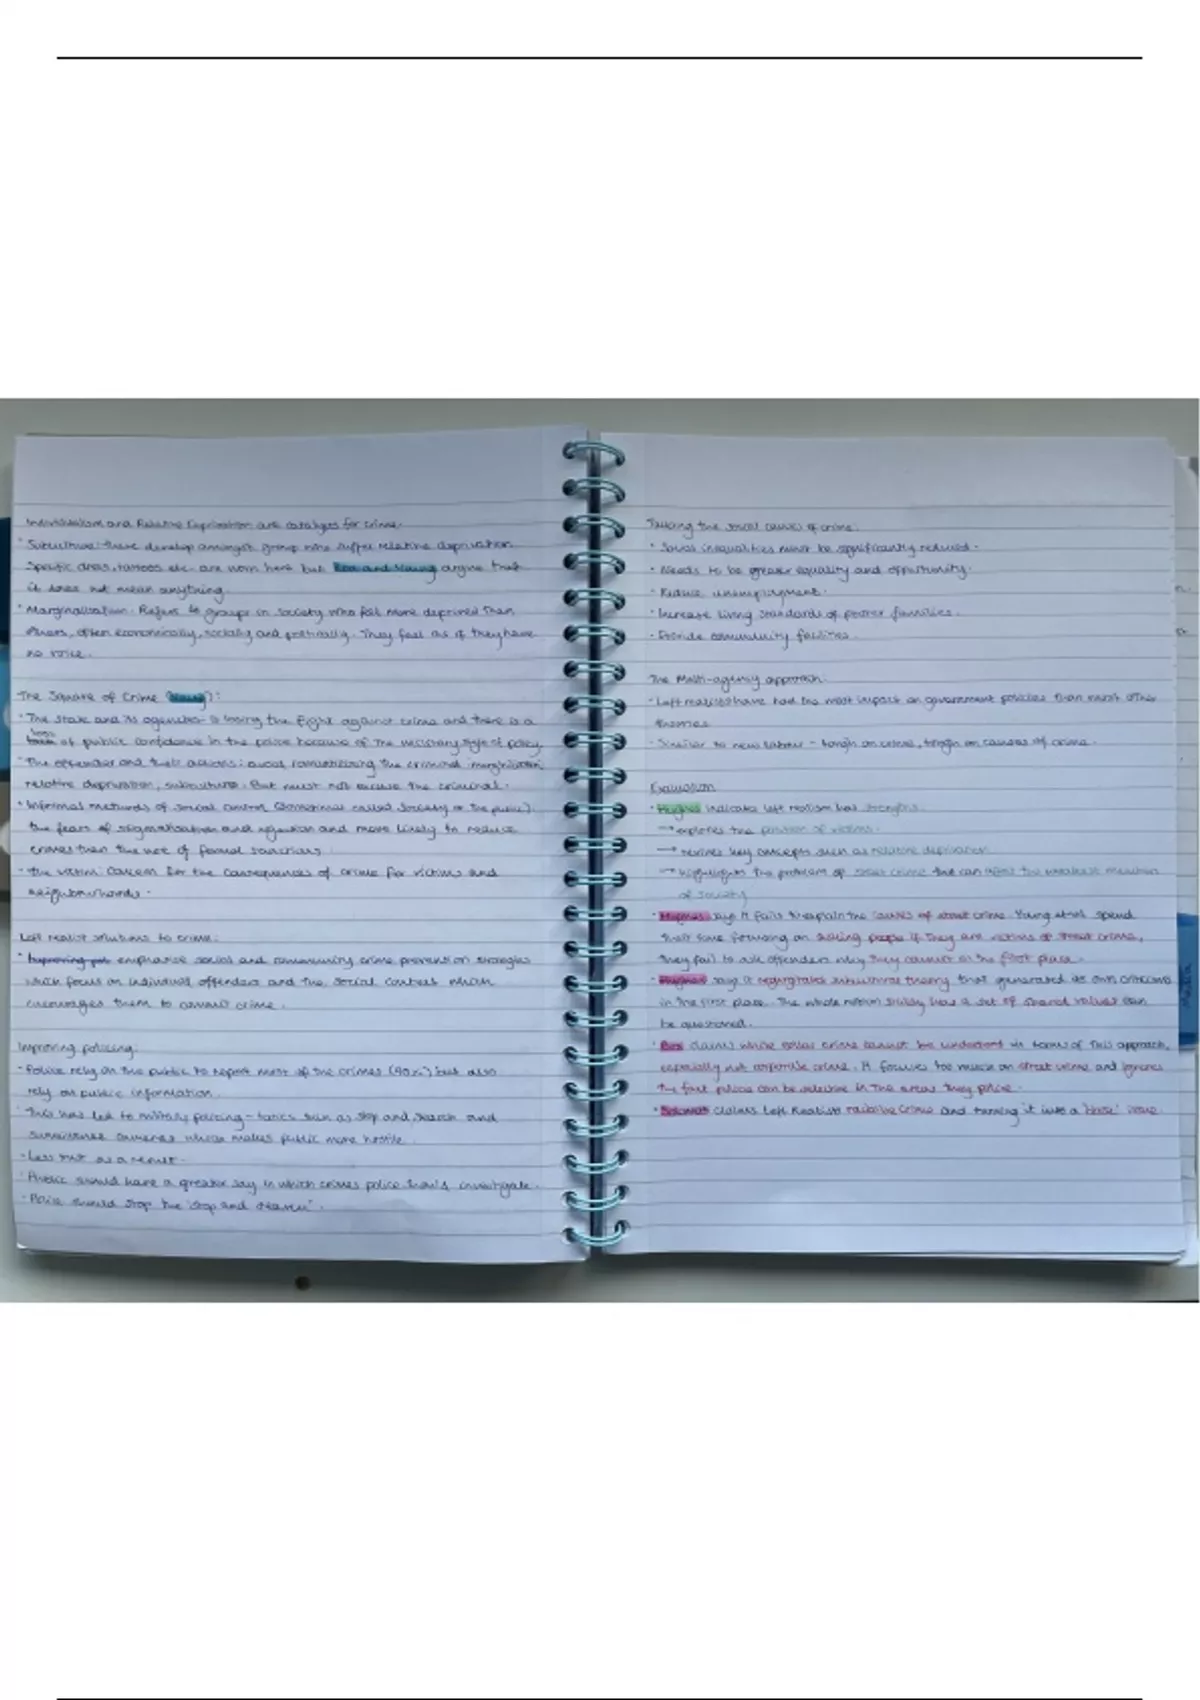 Individualism and Relative Deprivation are catalysts for crime.
• Subcultures: these develop amongst group who suffer relative deprivation.
Specific dress, tattoos etc. are worn here but Lea and Young argue that
it does not mean anything.
• Marginalisation: Refers to groups in society who feel more deprived than
others, often economically, socially and politically. They feel as if they have
no voice.
The Square of Crime (Young):
• The state and its agencies: is losing the fight against crime and there is a
loss of public confidence in the police because of the military style of policy.
• The offender and their actions: avoid romanticising the criminal: marginalisation,
relative deprivation, subcultures. But must not excuse the criminal.
• Informal methods of social control (sometimes called society or the public):
the fears of stigmatisation and rejection and more likely to reduce
crimes than the use of formal sanctions.
• The victim: Concern for the consequences of crime for victims and
neighbourhoods.
Left realist solutions to crime:
• Improving pol emphasise social and community crime prevention strategies
which focus on individual offenders and the social context which
encourages them to commit crime.
Improving policing:
• Police rely on the public to report most of the crimes (90%) but also
rely on public information.
• This has led to military policing - tactics such as stop and search and
surveillance cameras which makes public more hostile.
• Less trust as a result.
• Public should have a greater say in which crimes police should investigate.
• Police should stop the 'stop and search'.
Tackling the social causes of crime:
• Social inequalities must be significantly reduced.
• Needs to be greater equality and opportunity.
• Reduce unemployment.
• Increase living standards of poorer families.
• Provide community facilities.
The Multi-agency approach:
• Left realists have had the most impact on government policies than most other
theories
• Similar to new labour - tough on crime, tough on causes of crime.
Evaluation
• Hughes indicates left realism has strengths.
→ explores the position of victims.
→ revives key concepts such as relative deprivation
→ highlights the problem of street crime that can affect the weakest members
of society
• Hughes says it fails to explain the causes of street crime. Young et al. spend
their time focusing on asking people if they are victims of street crime,
they fail to ask offenders why they commit in the first place.
• Hughes says it regurgitates subcultural theory that generated its own criticisms
in the first place. The whole notion society has a set of shared values can
be questioned.
• Box claims white collar crime cannot be understood in terms of this approach,
especially not corporate crime. It focuses too much on street crime and ignores
the fact police can be selective in the areas they police.
claims Left Realists racialise crime and turning it into a 'black' issue.